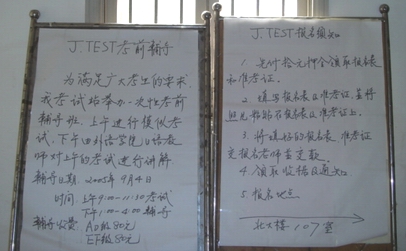 J.TEST考前辅导
为满足广大考生的要求,
我考试站举办一次性考前
辅导班,上午进行模拟考
试,下午由外语学院日语教
师对上午的考试进行讲解
辅导日期:2005年9月4日
时间:上午9:00-11:30考试
下午1:00-4:00辅导
辅导收费:AD级80元
EF级80元
J.TEST报名须知
1.先付拾元押金领取报名表
和准考证。
2.填写报名表及准考证,并将
照片粘贴在报名表及准考证上。
3.将填好的报名表、准考证
交报名老师并交款。
4.领取收据及通知
5.报名地点
北大楼107室